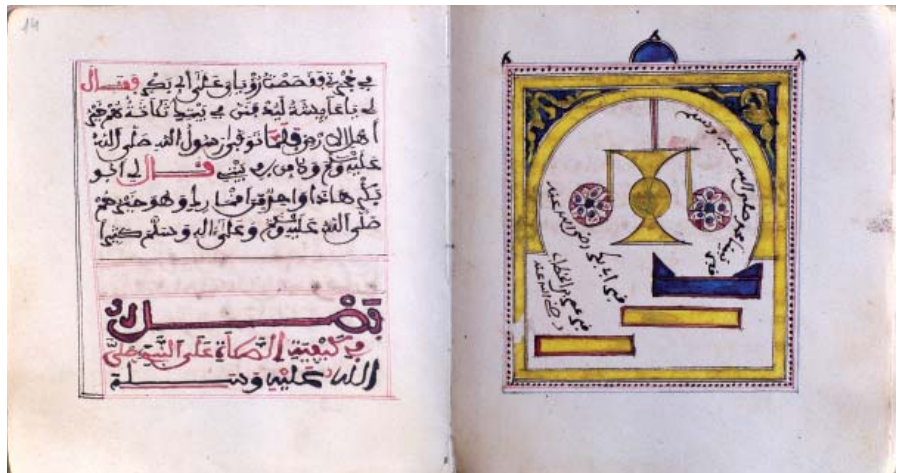 14
في حجرتي فقصصت رؤياي على ابي بكر فقال
لي يا عايشة ليدفنن في بيتك ثلاثة هم خير
أهل الارض فلما توفي رسول الله صلى الله
عليه وسلم ودفن في بيتي قال لي ابو
بكر هاذا واحد من اقمارك وهو خيرهم
صلى الله عليه وسلم وعلى اله وسلم كثيرا
فصل
في كيفية الصلاة على النبي صلى
الله عليه وسلم
قبر نبينا محمد صلى الله عليه وسلم
قبر ابي بكر رضي الله عنه
قبر عمر بن الخطاب
رضي الله عنه